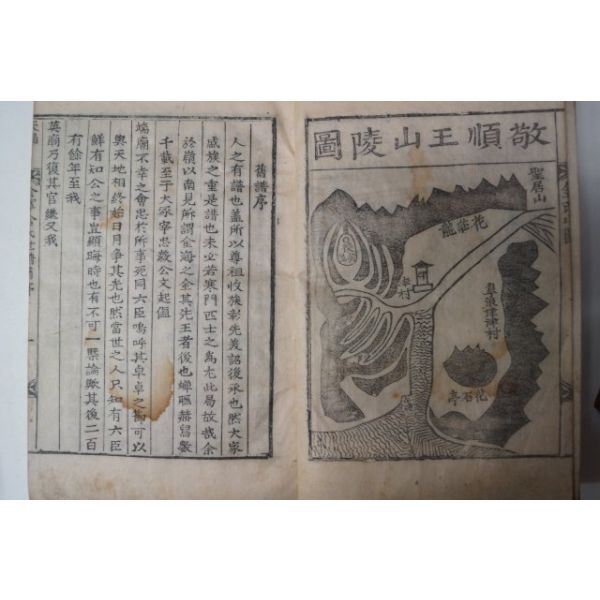 敬順王山陵圖
聖居山
花莊龍
花石亭
舊譜序
人之有譜也盖所以尊祖收族彰先美詔後承也然大家
戚族之重是譜也未必若寒門匹士之為尤此易故哉余
於嶺以南見所謂金海之金其先王者後也蟬聯赫舄數
千載至于大冢宰忠毅公文起值
端廟不幸之會忠於所事死同六臣嗚呼其卓卓之 可以
與天地相終始日月争其光也然當世之人只知有六臣
鮮有知公之事豈顯晦時也有不可一槩論歟其後二百
有餘年至我
英廟乃復其官繼又我